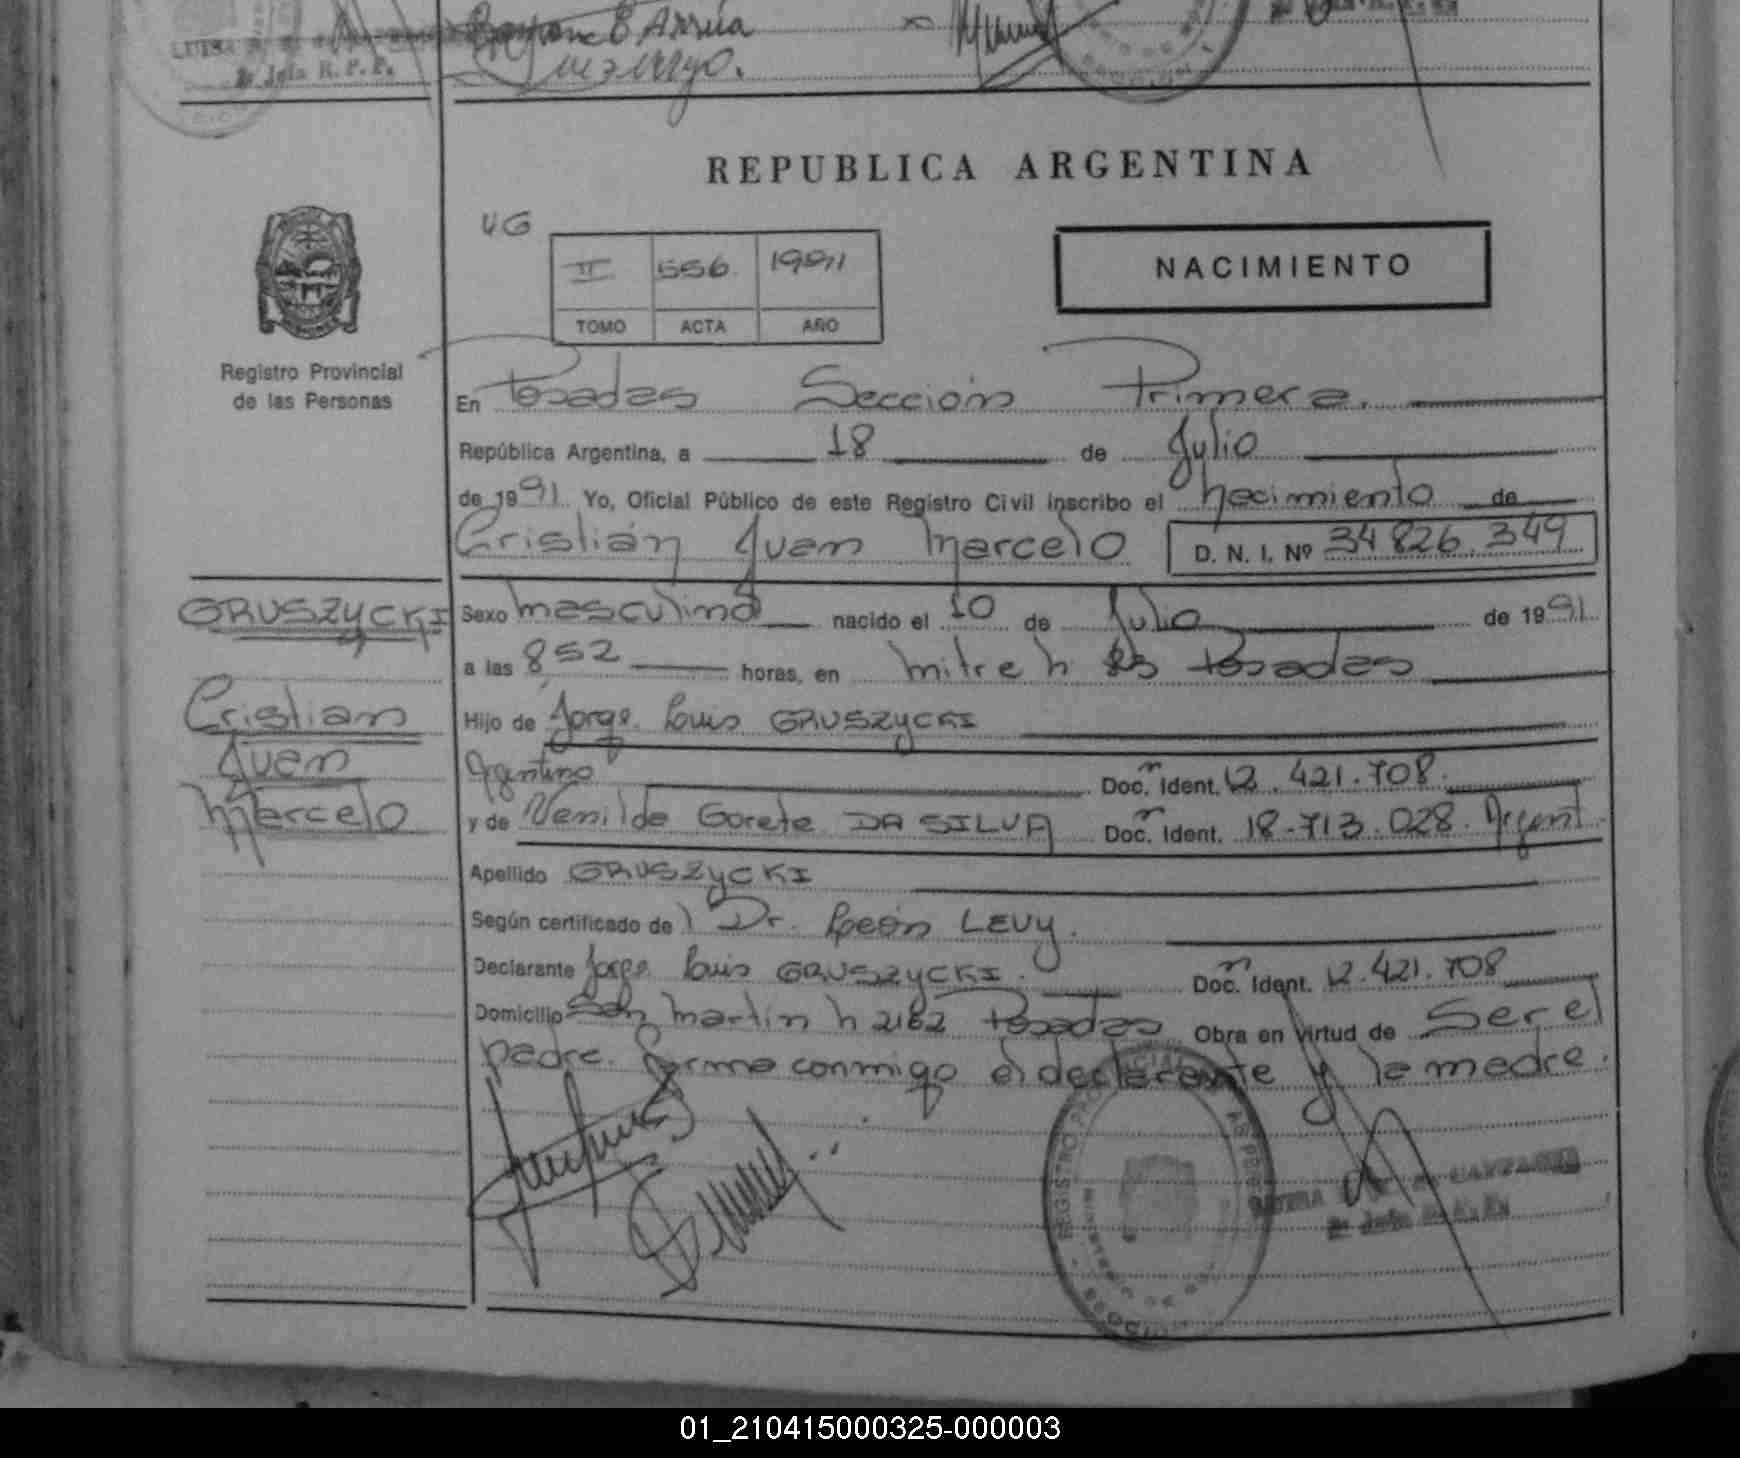 2º Jefe R. P. P.
REPUBLICA ARGENTINA
UG
II 556 1991
TOMO ACTA AÑO
NACIMIENTO
Registro Provincial
de las Personas
En Posadas Sección Primera.
República Argentina, a 18 de Julio
de 1991. Yo, Oficial Público de este Registro Civil inscribo el nacimiento de
Cristián Juan Marcelo D. N. I. Nº 34 826.349
GRUSZYCKI
Cristian
Juan
Marcelo
Sexo masculino nacido el 10 de Julio de 1991.
a las 852 horas, en mitre n Posadas
Hijo de Jorge Luis GRUSZYCKI
Argentino Doc. Ident. 12.421.708.
y de Venilde Gorete DA SILVA Doc. Ident. 18.713.028. Argent.
Apellido GRUSZYCKI
Según certificado de Dr. León LEVY.
Declarante Jorge Luis GRUSZYCKI. Doc. Ident. 12.421.708
Domicilio San martin n 2162 Posadas Obra en virtud de Ser el
padre. firma conmigo el declarante y la madre.
2º Jefe R. P. P.
01_210415000325-000003